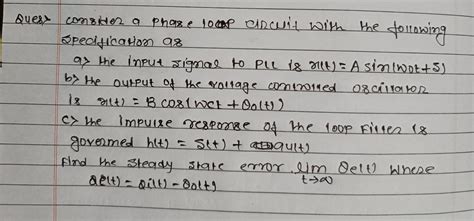 Ques> consider a phase loop circuit with the following
specification as
a> the input signal to PLL is x(t) = A sin(wot + S)
b> the output of the voltage controlled oscillator
is x(t) = B cos(wct + θo(t))
c> the impulse response of the loop filter is
governed h(t) = S(t) + u(t)
find the steady state error lim θe(t) whose
t→∞
θe(t) = θi(t) - θo(t)